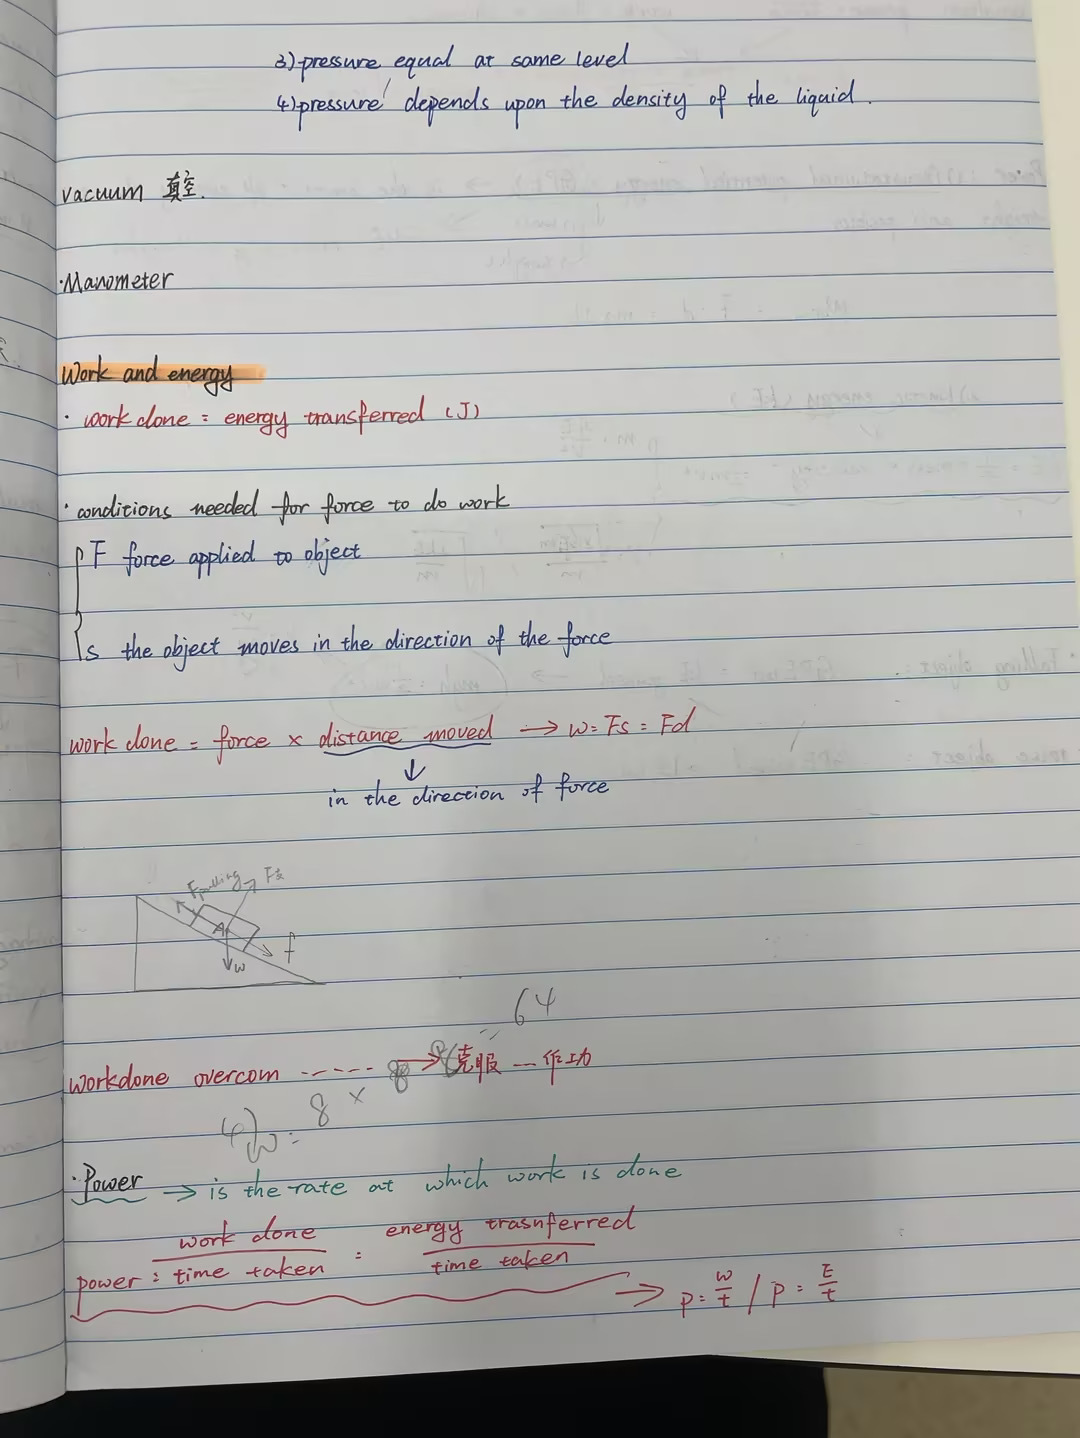 3) pressure equal at same level
4) pressure depends upon the density of the liquid.
vacuum 真空.
·Manometer
Work and energy
· work done = energy transferred (J)
· conditions needed for force to do work
F force applied to object
s the object moves in the direction of the force
work done = force × distance moved → W = Fs = Fd
↓
in the direction of force
Fpulling F支
A
f
W
64
workdone overcom ------ → 克服 — 作功
8 × 8
4) W =
·Power → is the rate at which work is done
power = work done / time taken = energy trasnferred / time taken
→ P = W/t / P = E/t